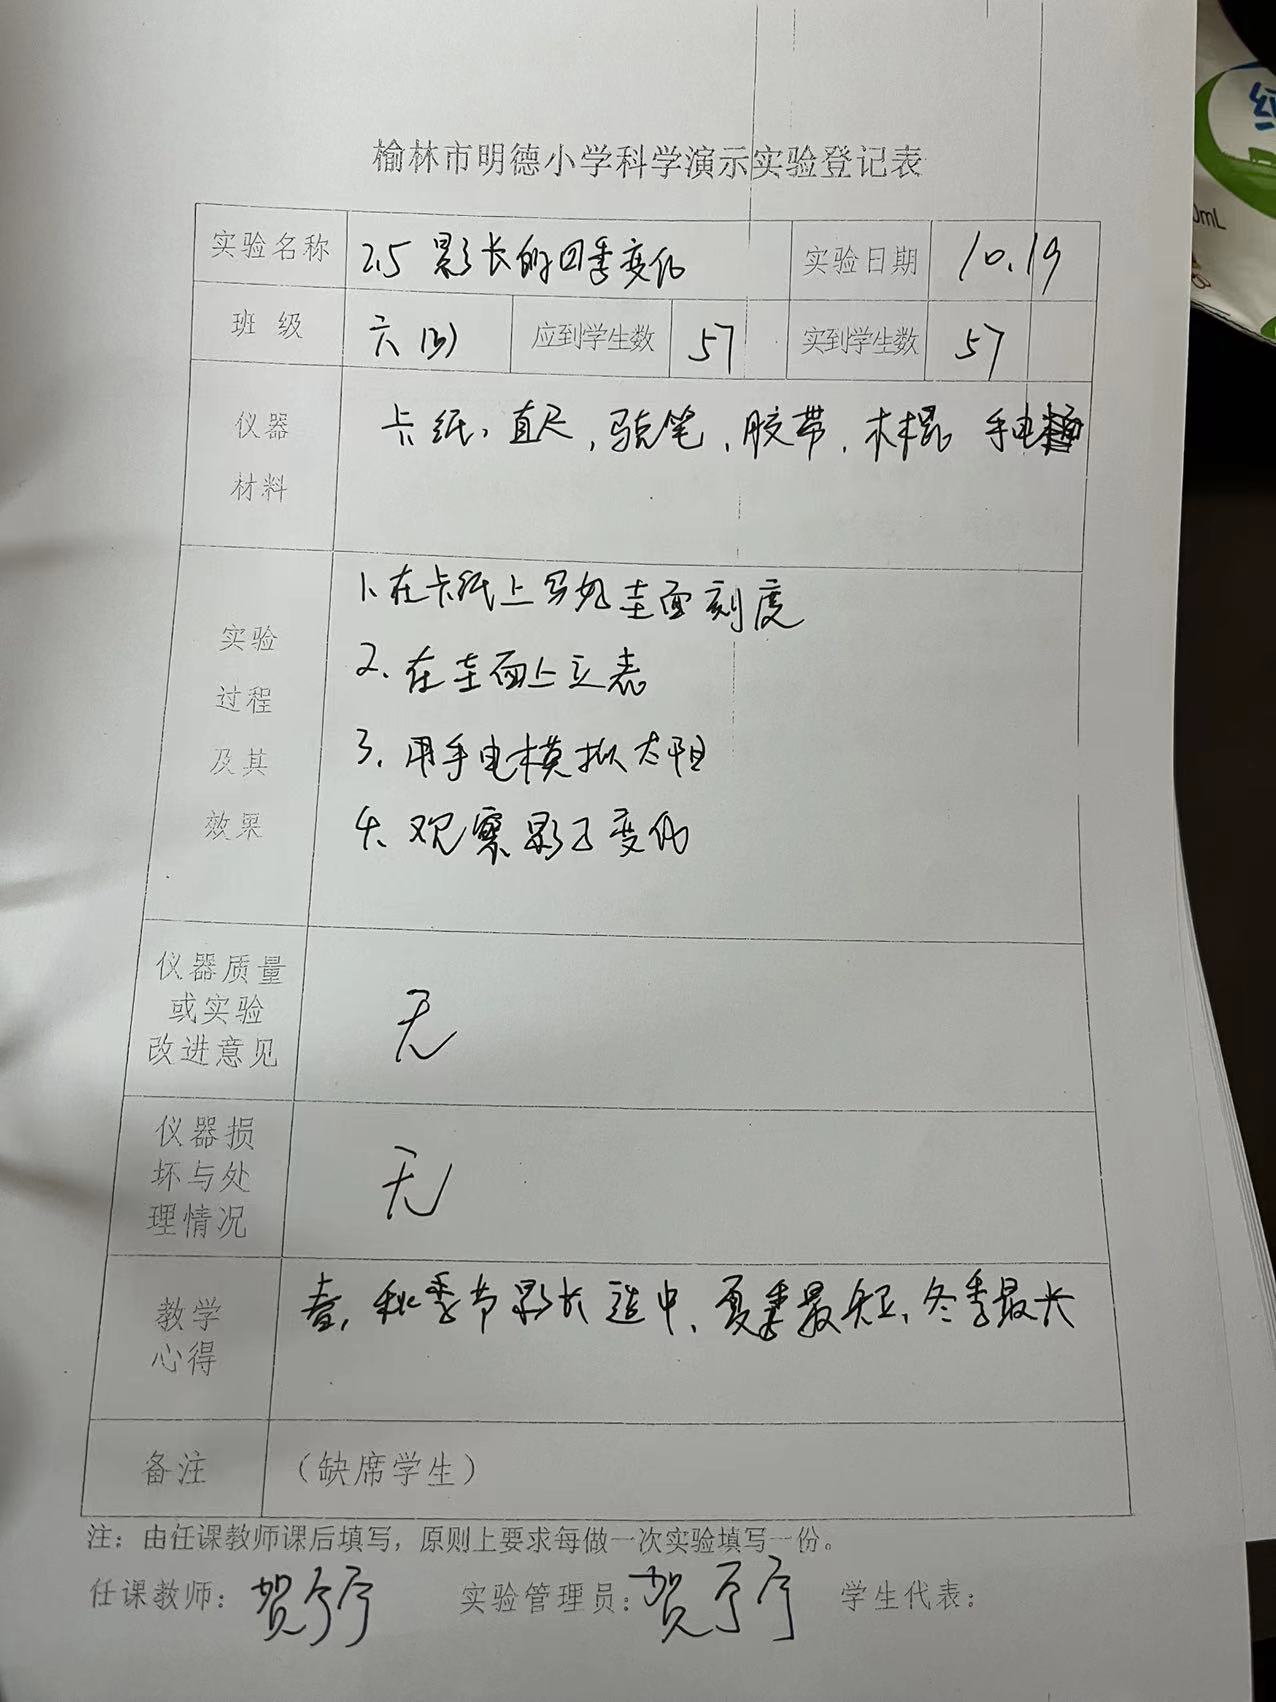 榆林市明德小学科学演示实验登记表
实验名称 2.5 影长的四季变化 实验日期 10.19
班级 六(3) 应到学生数 57 实到学生数 57
仪器 卡纸、直尺,记号笔,胶带,木棍 手电
材料
1.在卡纸上写好圭面刻度
实验
2.在圭面上立表
过程
3.用手电模拟太阳
及其
4.观察影子变化
效果
仪器质量
或实验 无
改进意见
仪器损
坏与处 无
理情况
教学 春,秋季节影长适中、夏季最短、冬季最长
心得
备注 (缺席学生)
注:由任课教师课后填写,原则上要求每做一次实验填写一份。
任课教师: 贺 实验管理员: 贺 学生代表:
纯
0mL